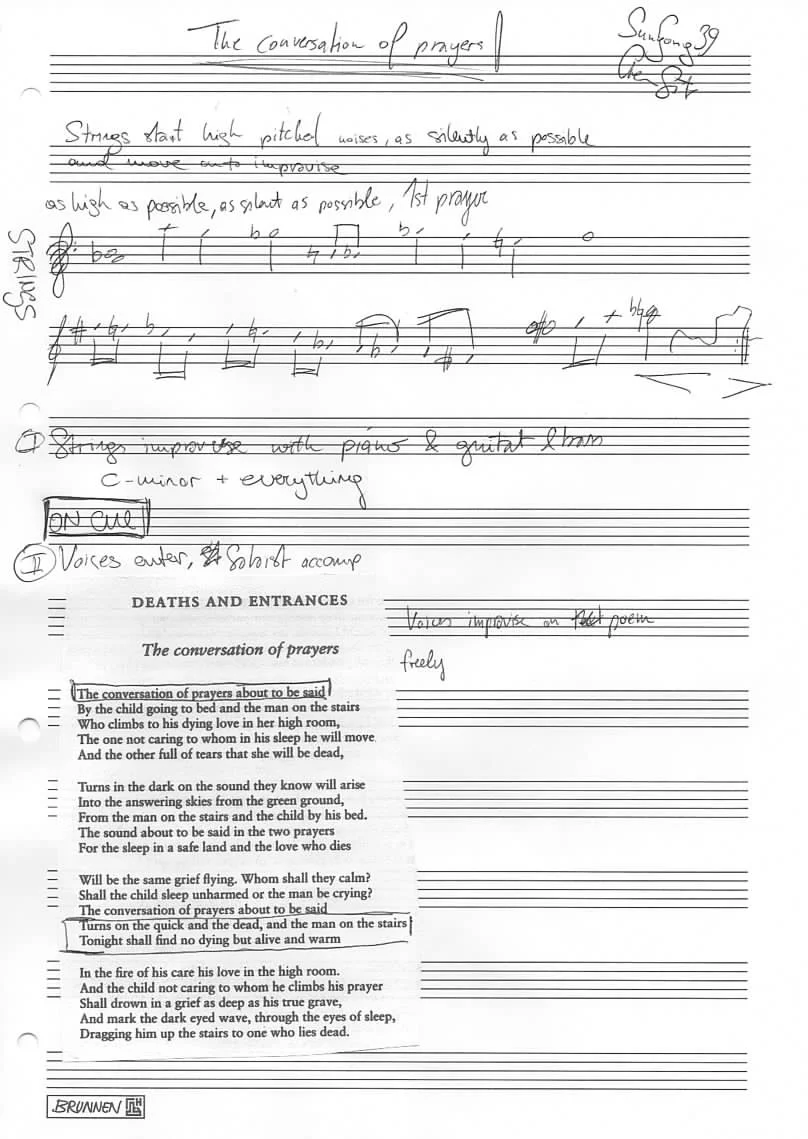 The conversation of prayers
SunGong 39
Strings start high pitched noises, as silently as possible
and move onto improvise
as high as possible, as silent as possible, 1st prayer
STRINGS
I Strings improvise with piano & guitar & bass
C-minor + everything
ON CUE
II Voices enter, Soloist accomp
DEATHS AND ENTRANCES
Voices improvise on poem
The conversation of prayers
freely
The conversation of prayers about to be said
By the child going to bed and the man on the stairs
Who climbs to his dying love in her high room,
The one not caring to whom in his sleep he will move
And the other full of tears that she will be dead,
Turns in the dark on the sound they know will arise
Into the answering skies from the green ground,
From the man on the stairs and the child by his bed.
The sound about to be said in the two prayers
For the sleep in a safe land and the love who dies
Will be the same grief flying. Whom shall they calm?
Shall the child sleep unharmed or the man be crying?
The conversation of prayers about to be said
Turns on the quick and the dead, and the man on the stairs
Tonight shall find no dying but alive and warm
In the fire of his care his love in the high room.
And the child not caring to whom he climbs his prayer
Shall drown in a grief as deep as his true grave,
And mark the dark eyed wave, through the eyes of sleep,
Dragging him up the stairs to one who lies dead.
BRUNNEN